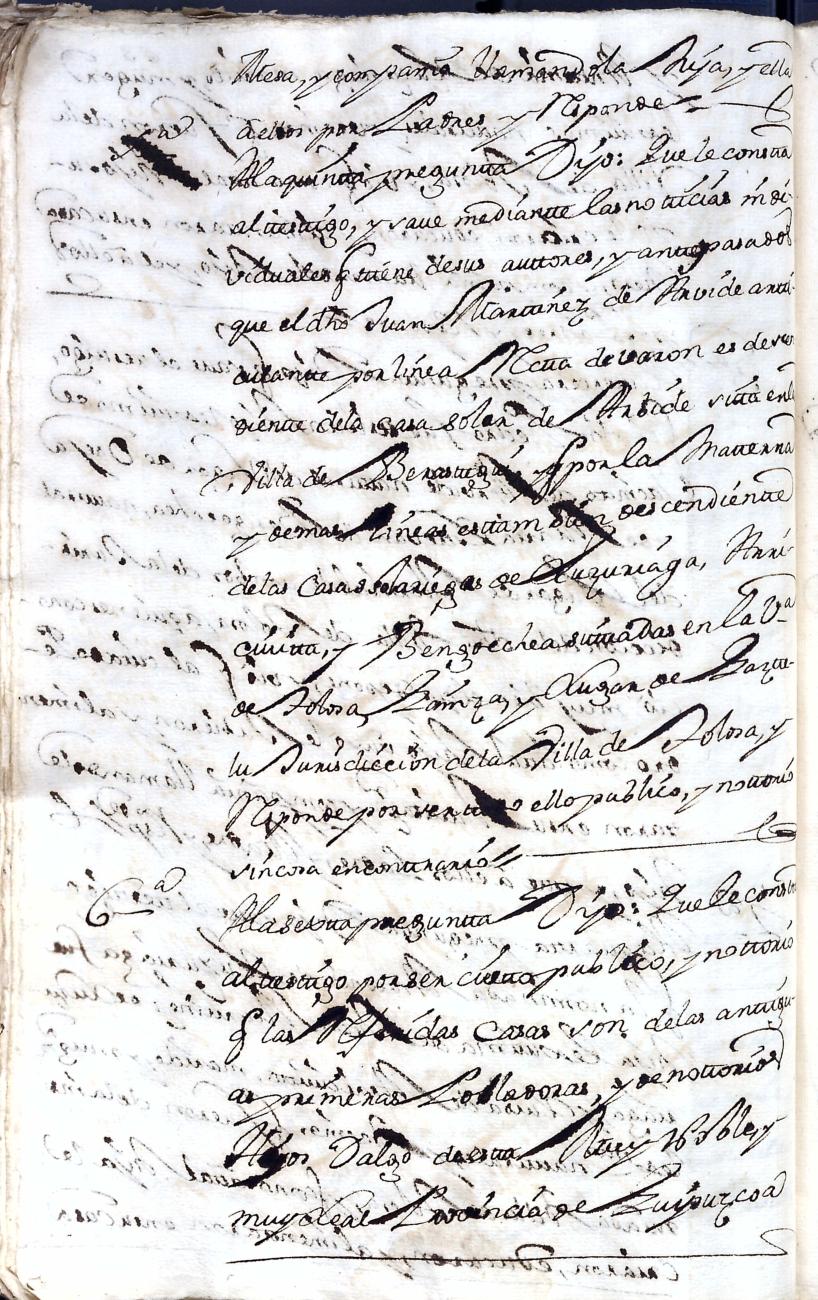 Mesa, y compania llamandola Hija, y ella
a ellos por Padres y Responde
5ª Ala quinta pregunta Dijo: Que le consta
al testigo, y save mediante las noticias indi-
viduales q tiene de sus auttores, y antepasados
que el dho Juan Martinez de Arvide arti-
culante por linea Recta de varon es descen
diente dela casa solar de Arbide sitta enla
Villa de Berastegui, y q por la Matterna
y demas lineas estambien descendiente
delas Casas solariegas de Luzuriaga, Arri-
civita, y Bengoechea sittuadas en la Vª
de Tolosa, y Lugar de
Jurisdiccion de la Villa de Tolosa, y
Responde por ser todo ello publico, y nottorio
sin cosa en contrario
6ª Ala sexta pregunta Dijo: Que le consta
al testigo por ser cierto publico, y nottorio
q las Referidas Casas son delas antigu-
as primeras Pobladoras, y de nottorios
Hijos Dalgo de esta Muy Noble, y
muy Leal Provincia de Guipuzcoa